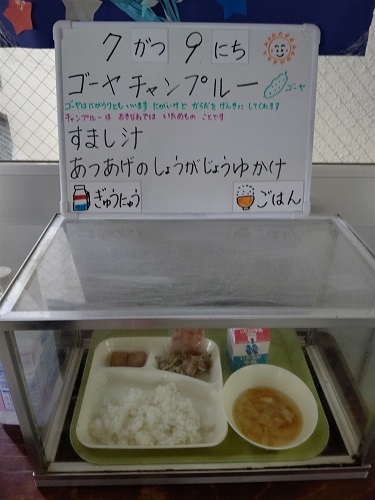 7 がつ 9 にち
ゴーヤ チャンプルー
ゴーヤ
ゴーヤは にがうりとも いいます にがいけど からだを げんきに してくれる
チャンプルーは おきなわでは いためもの ことです
すまし汁
あつあげのしょうがじょうゆかけ
ぎゅうにゅう
ごはん